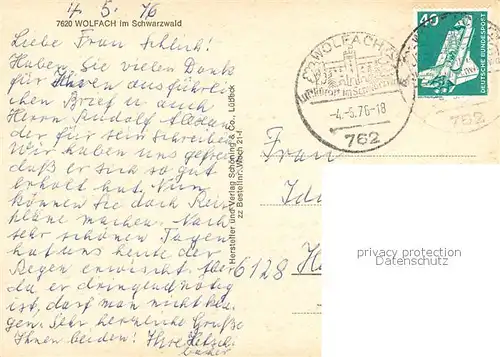 4. 5. 76
7620 WOLFACH im Schwarzwald
Liebe Frau Schlich!
Haben Sie vielen Dank
für Ihren ausführli-
chen Brief u. auch
Herrn Rudolf
der für sein Schreiben.
Wir haben uns gefreut
daß er sich so gut
erholt hat. Nun
können Sie doch Reise-
pläne machen. Nach
sehr schönen Tagen
hat uns heute der
Regen erwischt. Aber
da er dringend nötig
ist, darf man nicht kla-
gen. Sehr herzliche Grüße
Ihnen beiden! Ihre
Hersteller und Verlag Schöning & Co., Lübeck
zz Bestellnr. Wolch 21-f
WOLFACH
-4.-5.76-18
762
40
DEUTSCHE BUNDESPOST
762
Frau
6128
privacy protection
Datenschutz